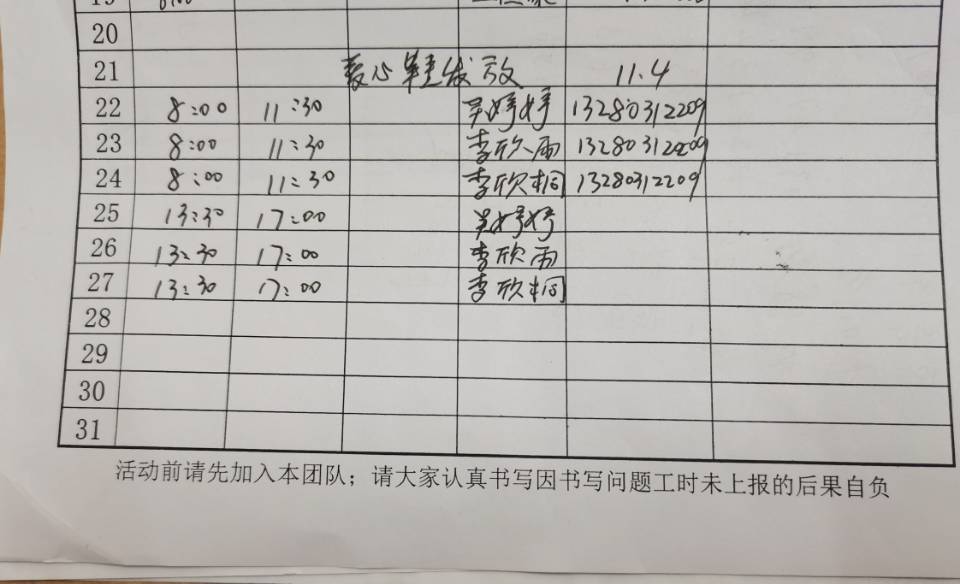 20
21 爱心鞋发放 11.4
22 8:00 11:30 吴婷婷 13280312209
23 8:00 11:30 李欣雨 13280312209
24 8:00 11:30 李欣桐 13280312209
25 13:30 17:00 吴婷婷
26 13:30 17:00 李欣雨
27 13:30 17:00 李欣桐
28
29
30
31
活动前请先加入本团队；请大家认真书写因书写问题工时未上报的后果自负